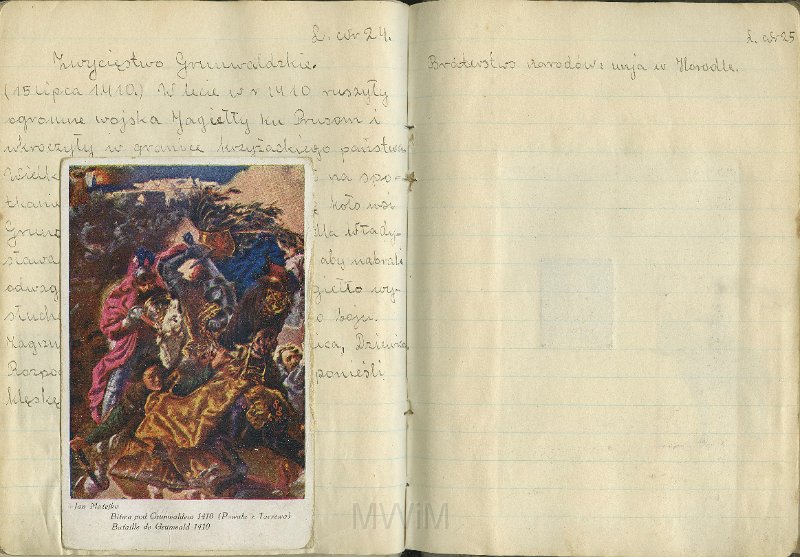 L. cór 24.
Zwycięstwo Grunwaldzkie.
(15 lipca 1410.) W lecie w r 1410 ruszyły
ogromne wojska Jagiełły ku Prusom i
wkroczyły w granice krzyżackiego państwa.
Wielk na spo-
tkanie koło wsi
Grunw dla włady-
sława aby nabrali
odwag giełło wy-
słuch o boju.
Rozpo ponieśli
klęskę
Jan Matejko
Bitwa pod Grunwaldem 1410 (Powała z Taczewa)
Bataille de Grunwald 1410
L. cór 25
Braterstwo narodów: unja w Horodle.
MWiM